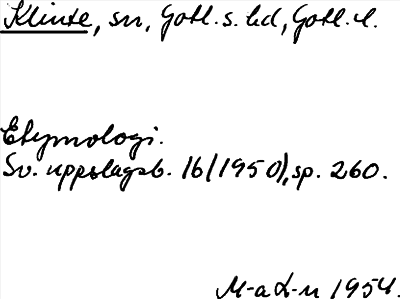 Klinte, sn, Gotl. s. hd, Gotl. l.
Etymologi.
Sv. uppslagsb. 16 (1950), sp. 260.
M-a L-n 1954.